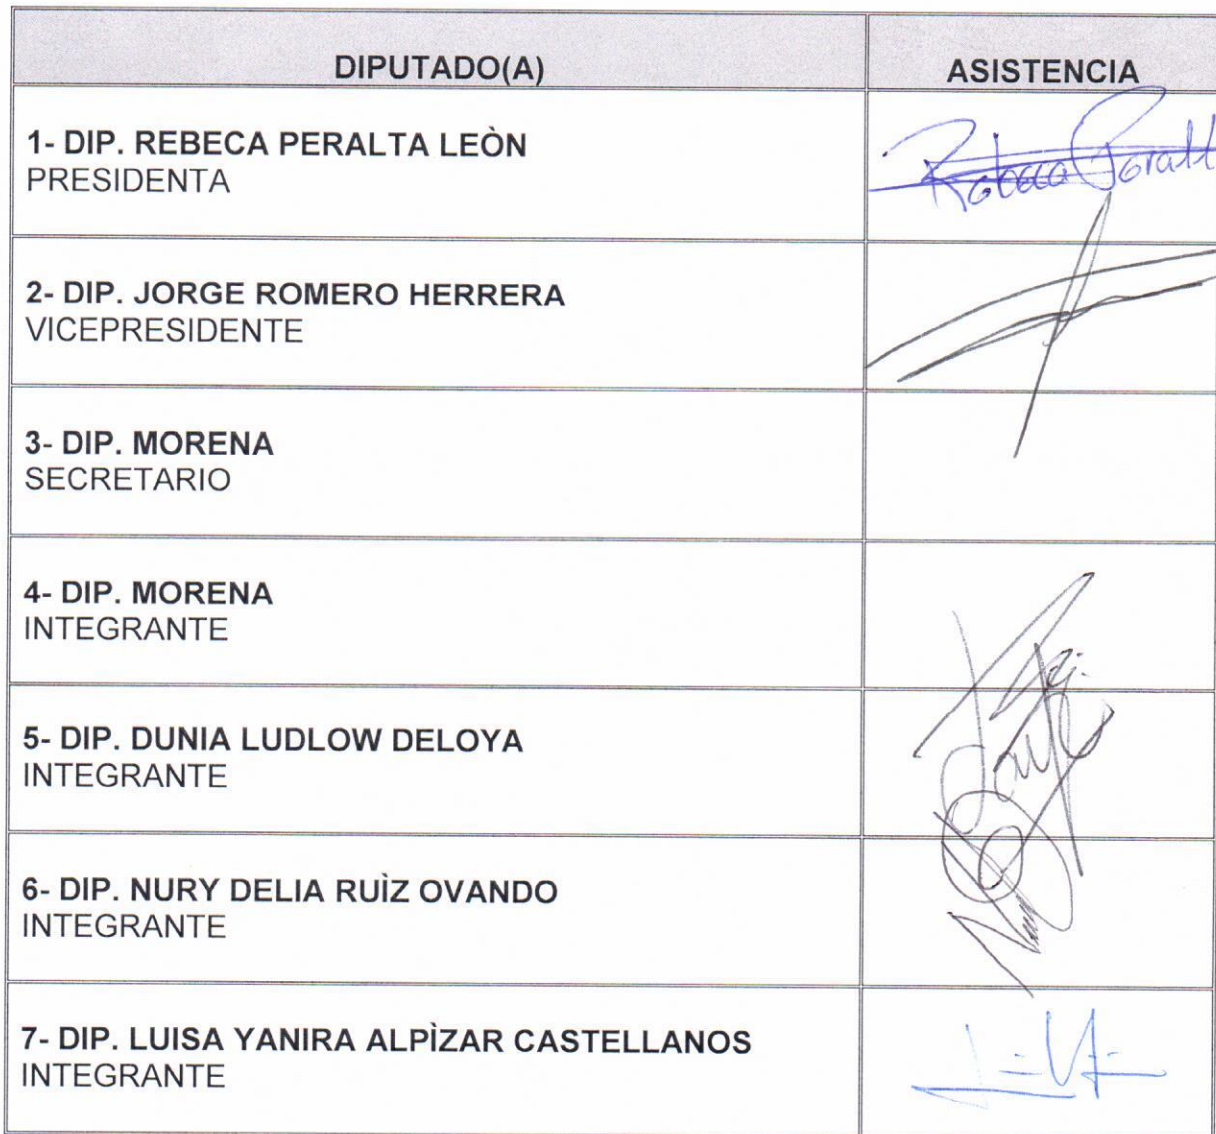 DIPUTADO(A) ASISTENCIA
1- DIP. REBECA PERALTA LEÒN
PRESIDENTA
Rebeca Peralt
2- DIP. JORGE ROMERO HERRERA
VICEPRESIDENTE
3- DIP. MORENA
SECRETARIO
4- DIP. MORENA
INTEGRANTE
5- DIP. DUNIA LUDLOW DELOYA
INTEGRANTE
6- DIP. NURY DELIA RUÌZ OVANDO
INTEGRANTE
7- DIP. LUISA YANIRA ALPÌZAR CASTELLANOS
INTEGRANTE